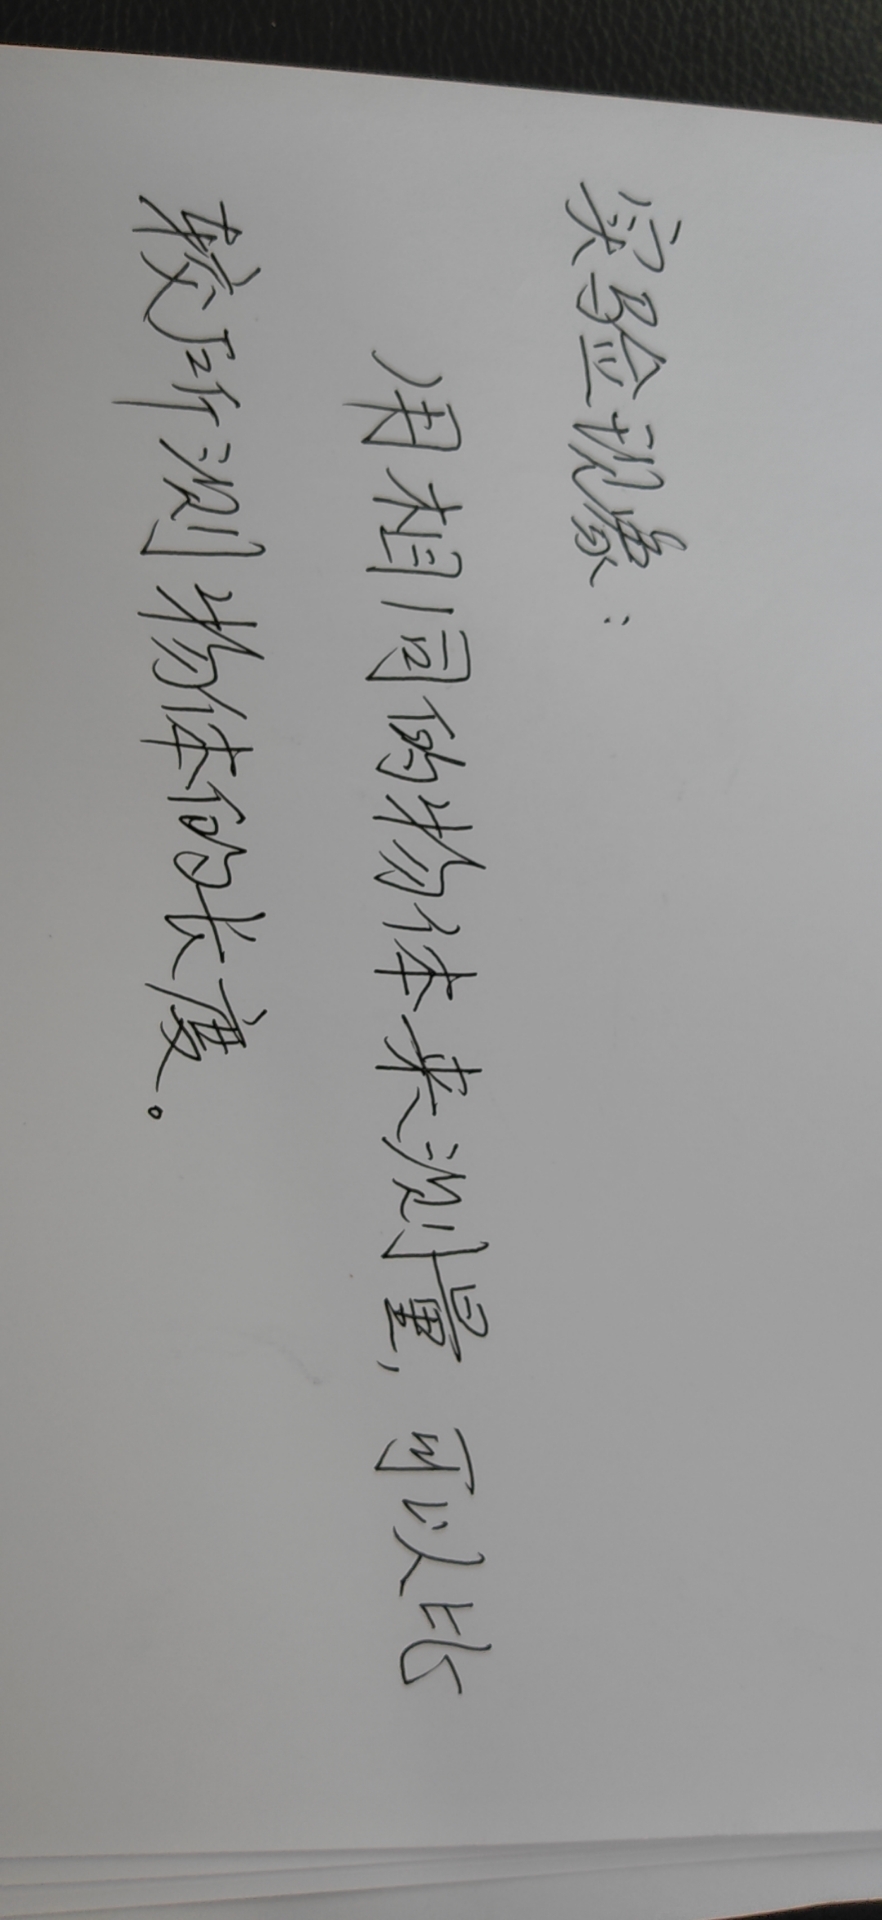 实验现象：
用相同的物体来测量，可以比
较所测物体的长度。